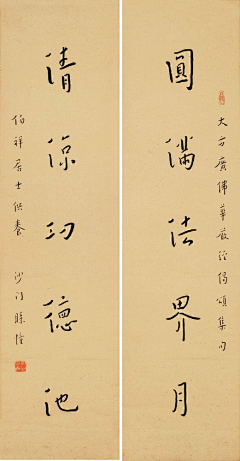 大方廣佛華嚴經偈頌集句
圓滿法界月
清涼功德池
伯祥居士供養 沙門